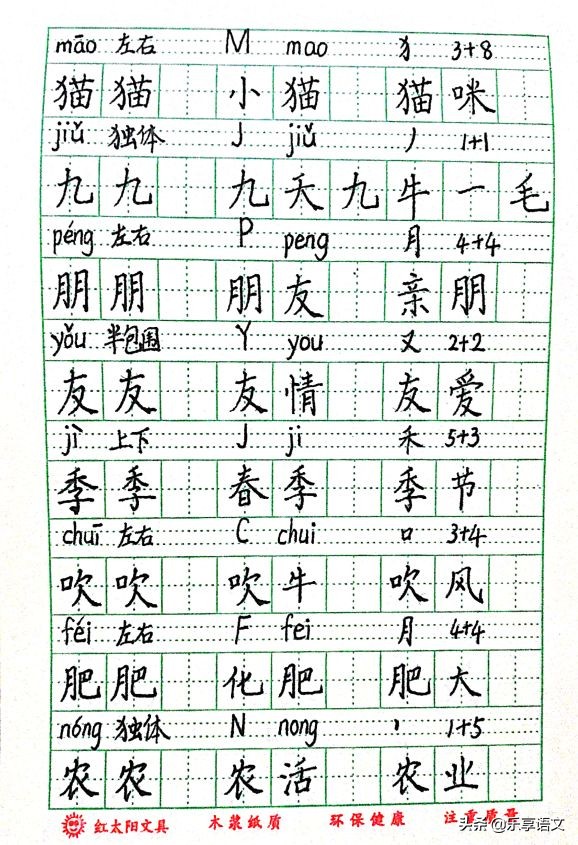 māo 左右 M mao 犭 3+8
猫 猫 小 猫 猫 咪
jiǔ 独体 J jiǔ 丿 1+1
九 九 九 天 九 牛 一 毛
péng 左右 P peng 月 4+4
朋 朋 朋 友 亲 朋
yǒu 半包围 Y you 又 2+2
友 友 友 情 友 爱
jì 上下 J ji 禾 5+3
季 季 春 季 季 节
chuī 左右 C chui 口 3+4
吹 吹 吹 牛 吹 风
féi 左右 F fei 月 4+4
肥 肥 化 肥 肥 大
nóng 独体 N nong 丶 1+5
农 农 农 活 农 业
红太阳文具 木浆纸质 环保健康 注重质量
头条 @乐享语文